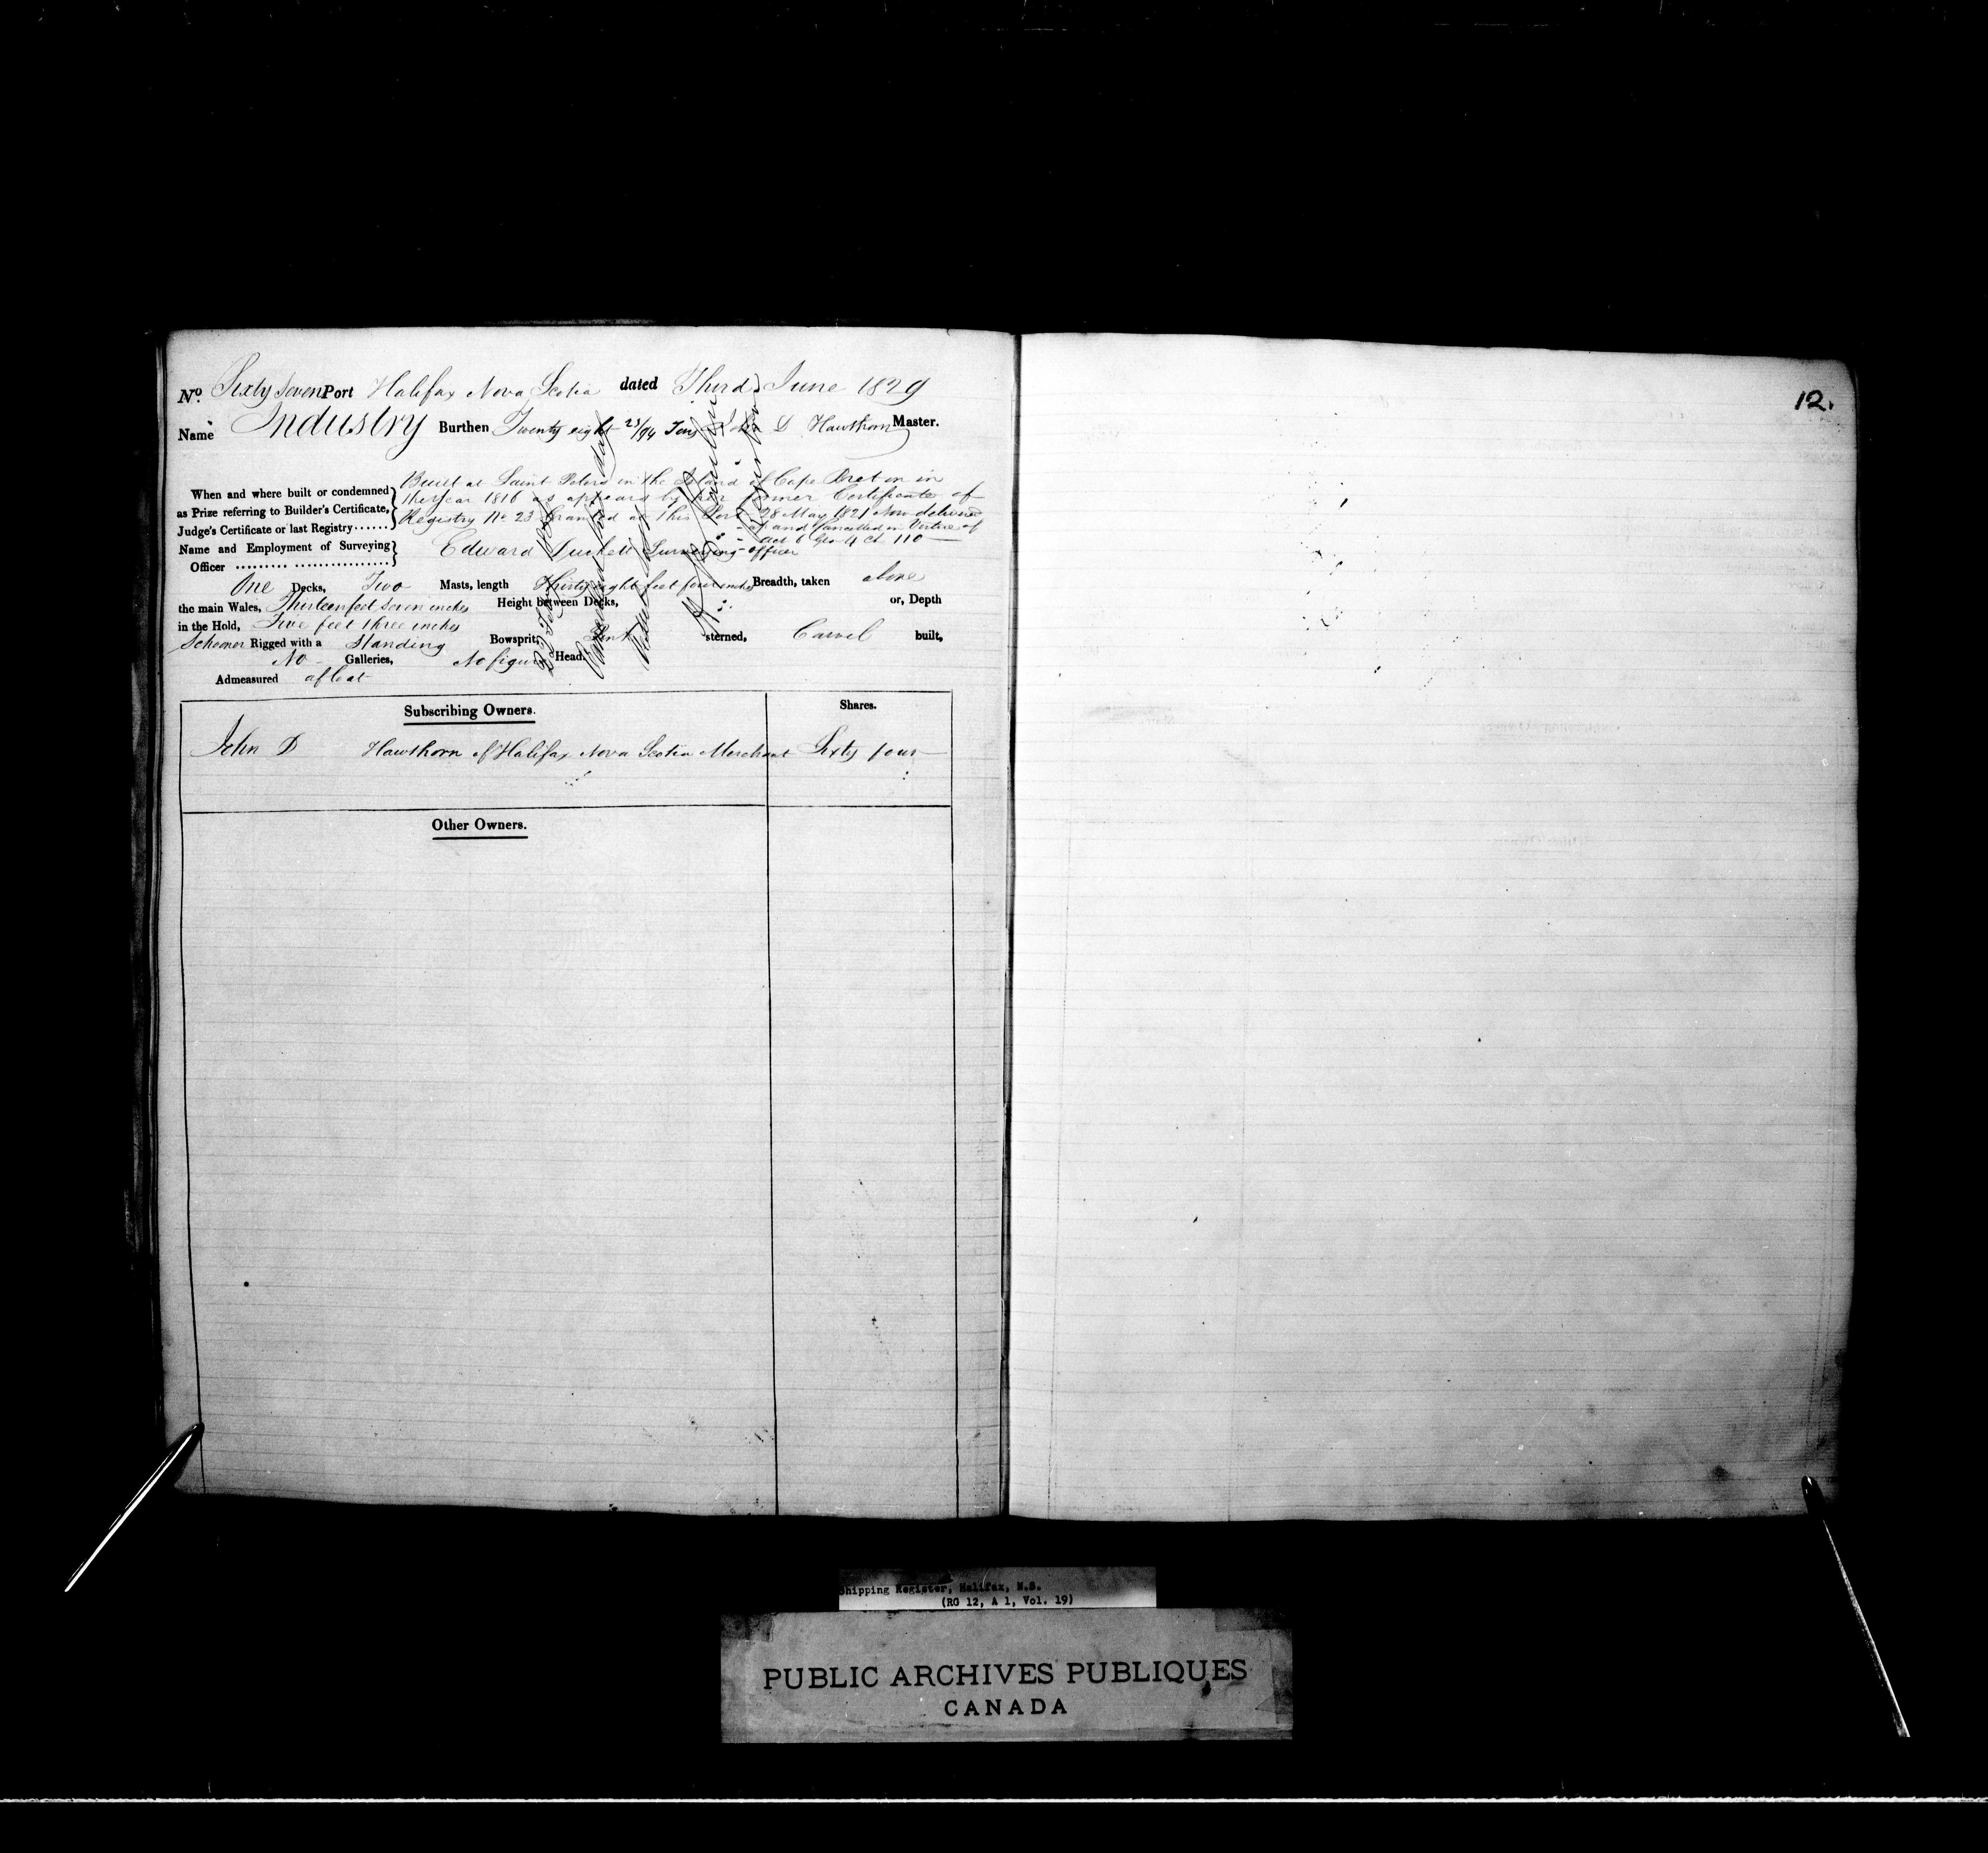 No. Sixty Seven Port Halifax Nova Scotia dated Third June 1829
Name Industry Burthen Twenty eight 23/94 Tons John D Hawthorn Master.
Built at Saint Peters in the Island of Cape Breton in
When and where built or condemned the Year 1816 as appears by her former Certificate of
as Prize referring to Builder's Certificate, Registry No 23 Granted at this Port 28 May 1821 Now delivered
Judge's Certificate or last Registry...... up and Cancelled in Virtue of
act 6 Geo 4 Ch 110
Name and Employment of Surveying Edward Surveying officer
Officer
One Decks, Two Masts, length Thirty eight feet four inches Breadth, taken above
the main Wales, Thirteen feet Seven inches Height between Decks, or, Depth
in the Hold, Five feet three inches
Schooner Rigged with a Standing Bowsprit, sterned, Carvel built,
No Galleries, No figure Head.
Admeasured afloat
Subscribing Owners. Shares.
John D Hawthorn of Halifax Nova Scotia Merchant Sixty four
Other Owners.
12.
Shipping Register, Halifax, N.S.
(RG 12, A 1, Vol. 19)
PUBLIC ARCHIVES PUBLIQUES
CANADA